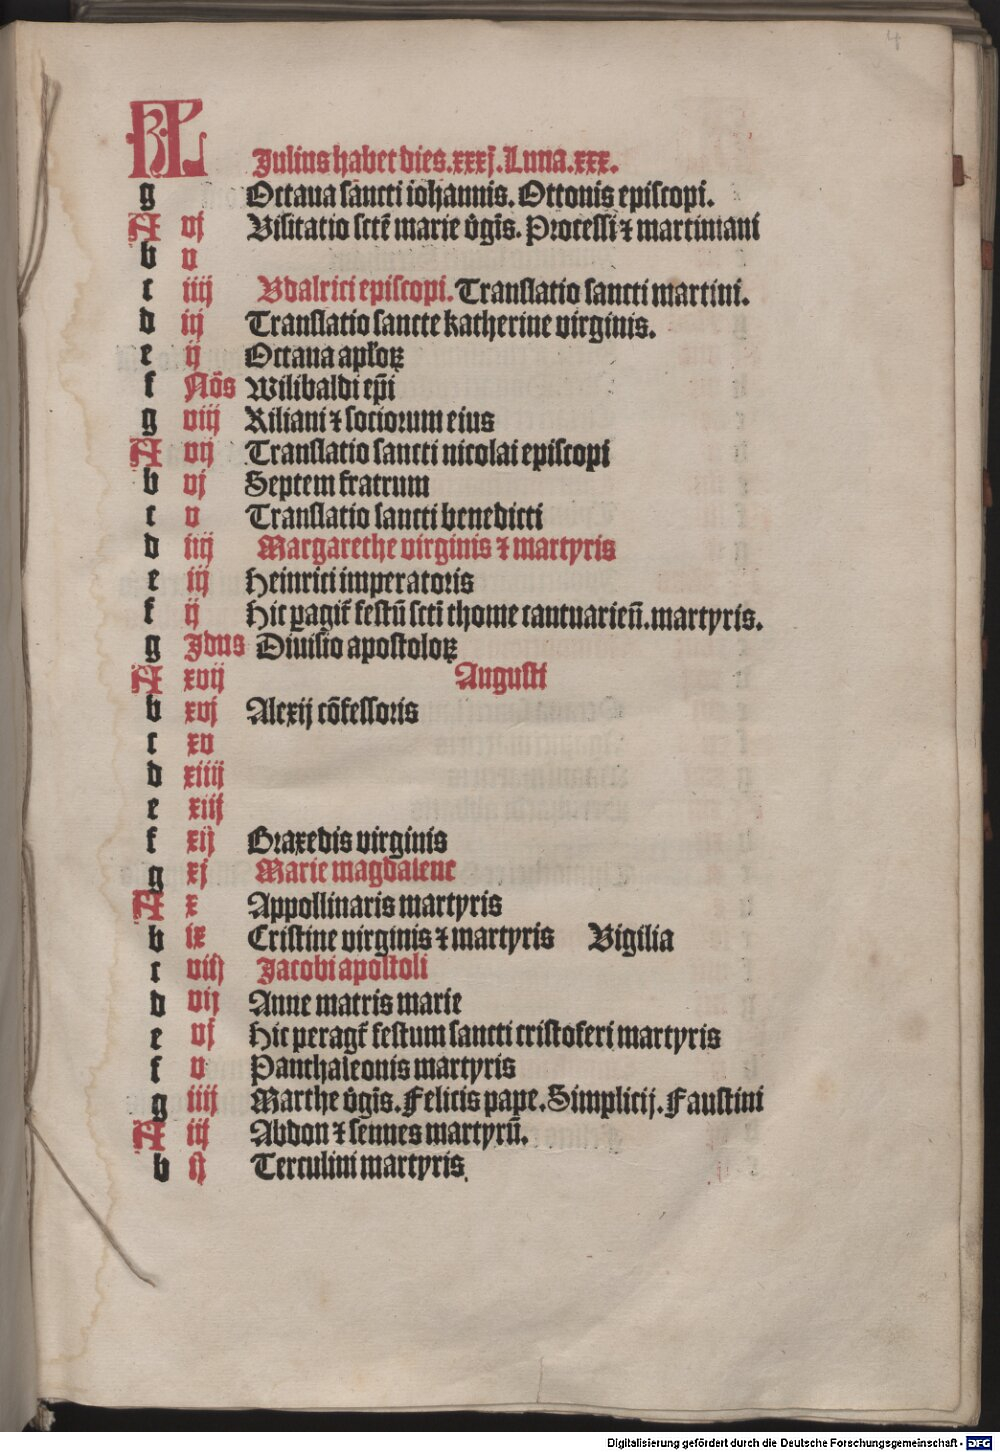 4
KL Julius habet dies.xxxj.Luna.xxx.
g Octaua sancti iohannis. Ottonis episcopi.
A vj Visitatio sctē marie v̄gīs. Processi ⁊ martiniani
b v
c iiij Vdalrici episcopi. Translatio sancti martini.
d iij Translatio sancte katherine virginis.
e ij Octaua apl'oꝝ
f Nōs Wilibaldi ep̄i
g viij Kiliani ⁊ sociorum eius
A vij Translatio sancti nicolai episcopi
b vj Septem fratrum
c v Translatio sancti benedicti
d iiij Margarethe virginis ⁊ martyris
e iij Heinrici imperatoris
f ij Hic ꝑagit᷑ festū sctī thome cantuarien̄.martyris.
g Jdus Diuisio apostoloꝝ
A xvij Augusti
b xvj Alexij cōfessoris
c xv
d xiiij
e xiij
f xij Braxedis virginis
g xj Marie magdalene
A x Appollinaris martyris
b ix Cristine virginis ⁊ martyris Vigilia
c viij Jacobi apostoli
d vij Anne matris marie
e vj Hic peragt᷑ festum sancti cristoferi martyris
f v Panthaleonis martyris
g iiij Marthe v̄gīs. Felicis pape. Simplicij. Faustini
A iij Abdon ⁊ sennes martyrū.
b ij Terculini martyris.
Digitalisierung gefördert durch die Deutsche Forschungsgemeinschaft - DFG